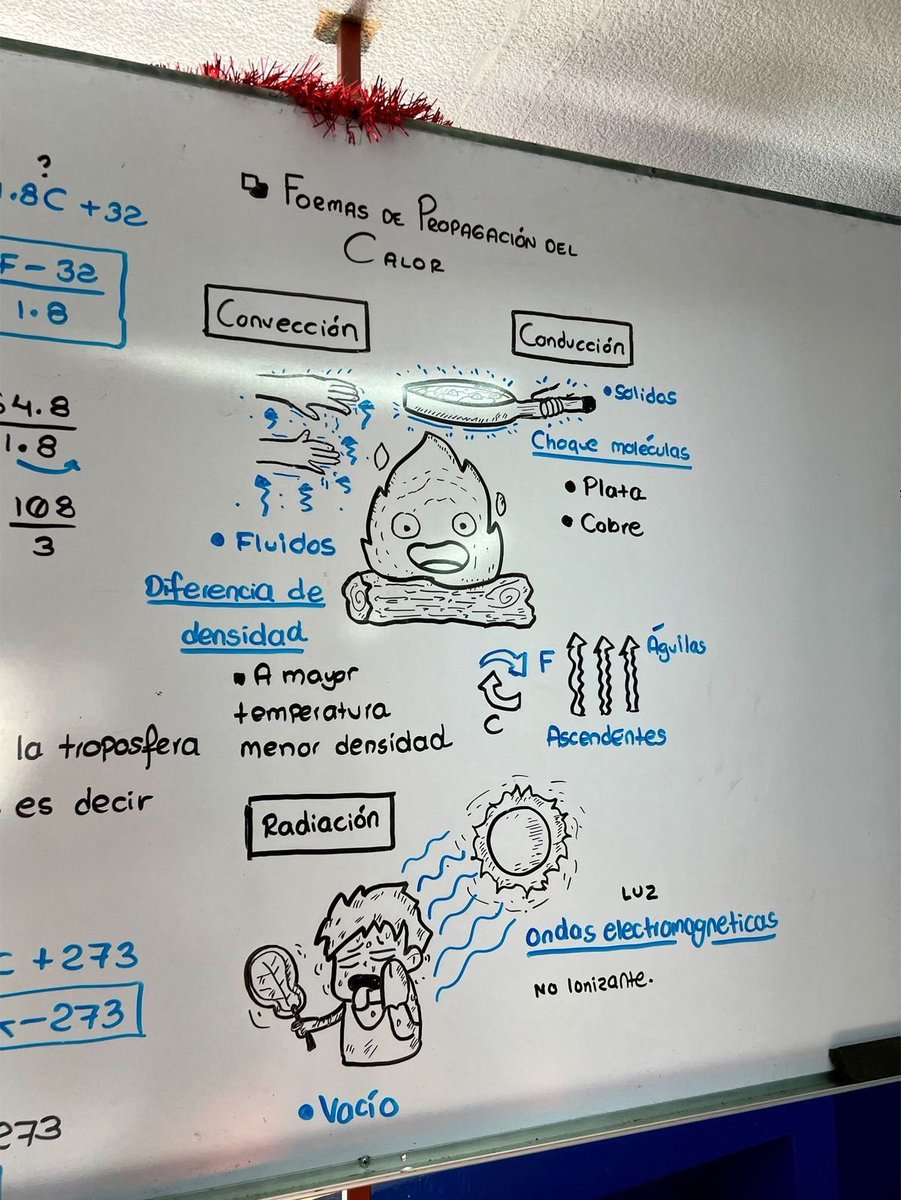 ?
.8C + 32
F - 32
1.8
4.8
1.8
108
3
la troposfera
es decir
+ 273
- 273
273
Foemas de Propagación del
Calor
Convección
Conducción
• Solidos
Choque moléculas
• Plata
• Cobre
• Fluidos
Diferencia de
densidad
▪ A mayor
temperatura
menor densidad
F
C
Águilas
Ascendentes
Radiación
Luz
ondas electromagneticas
No Ionizante.
• Vacío